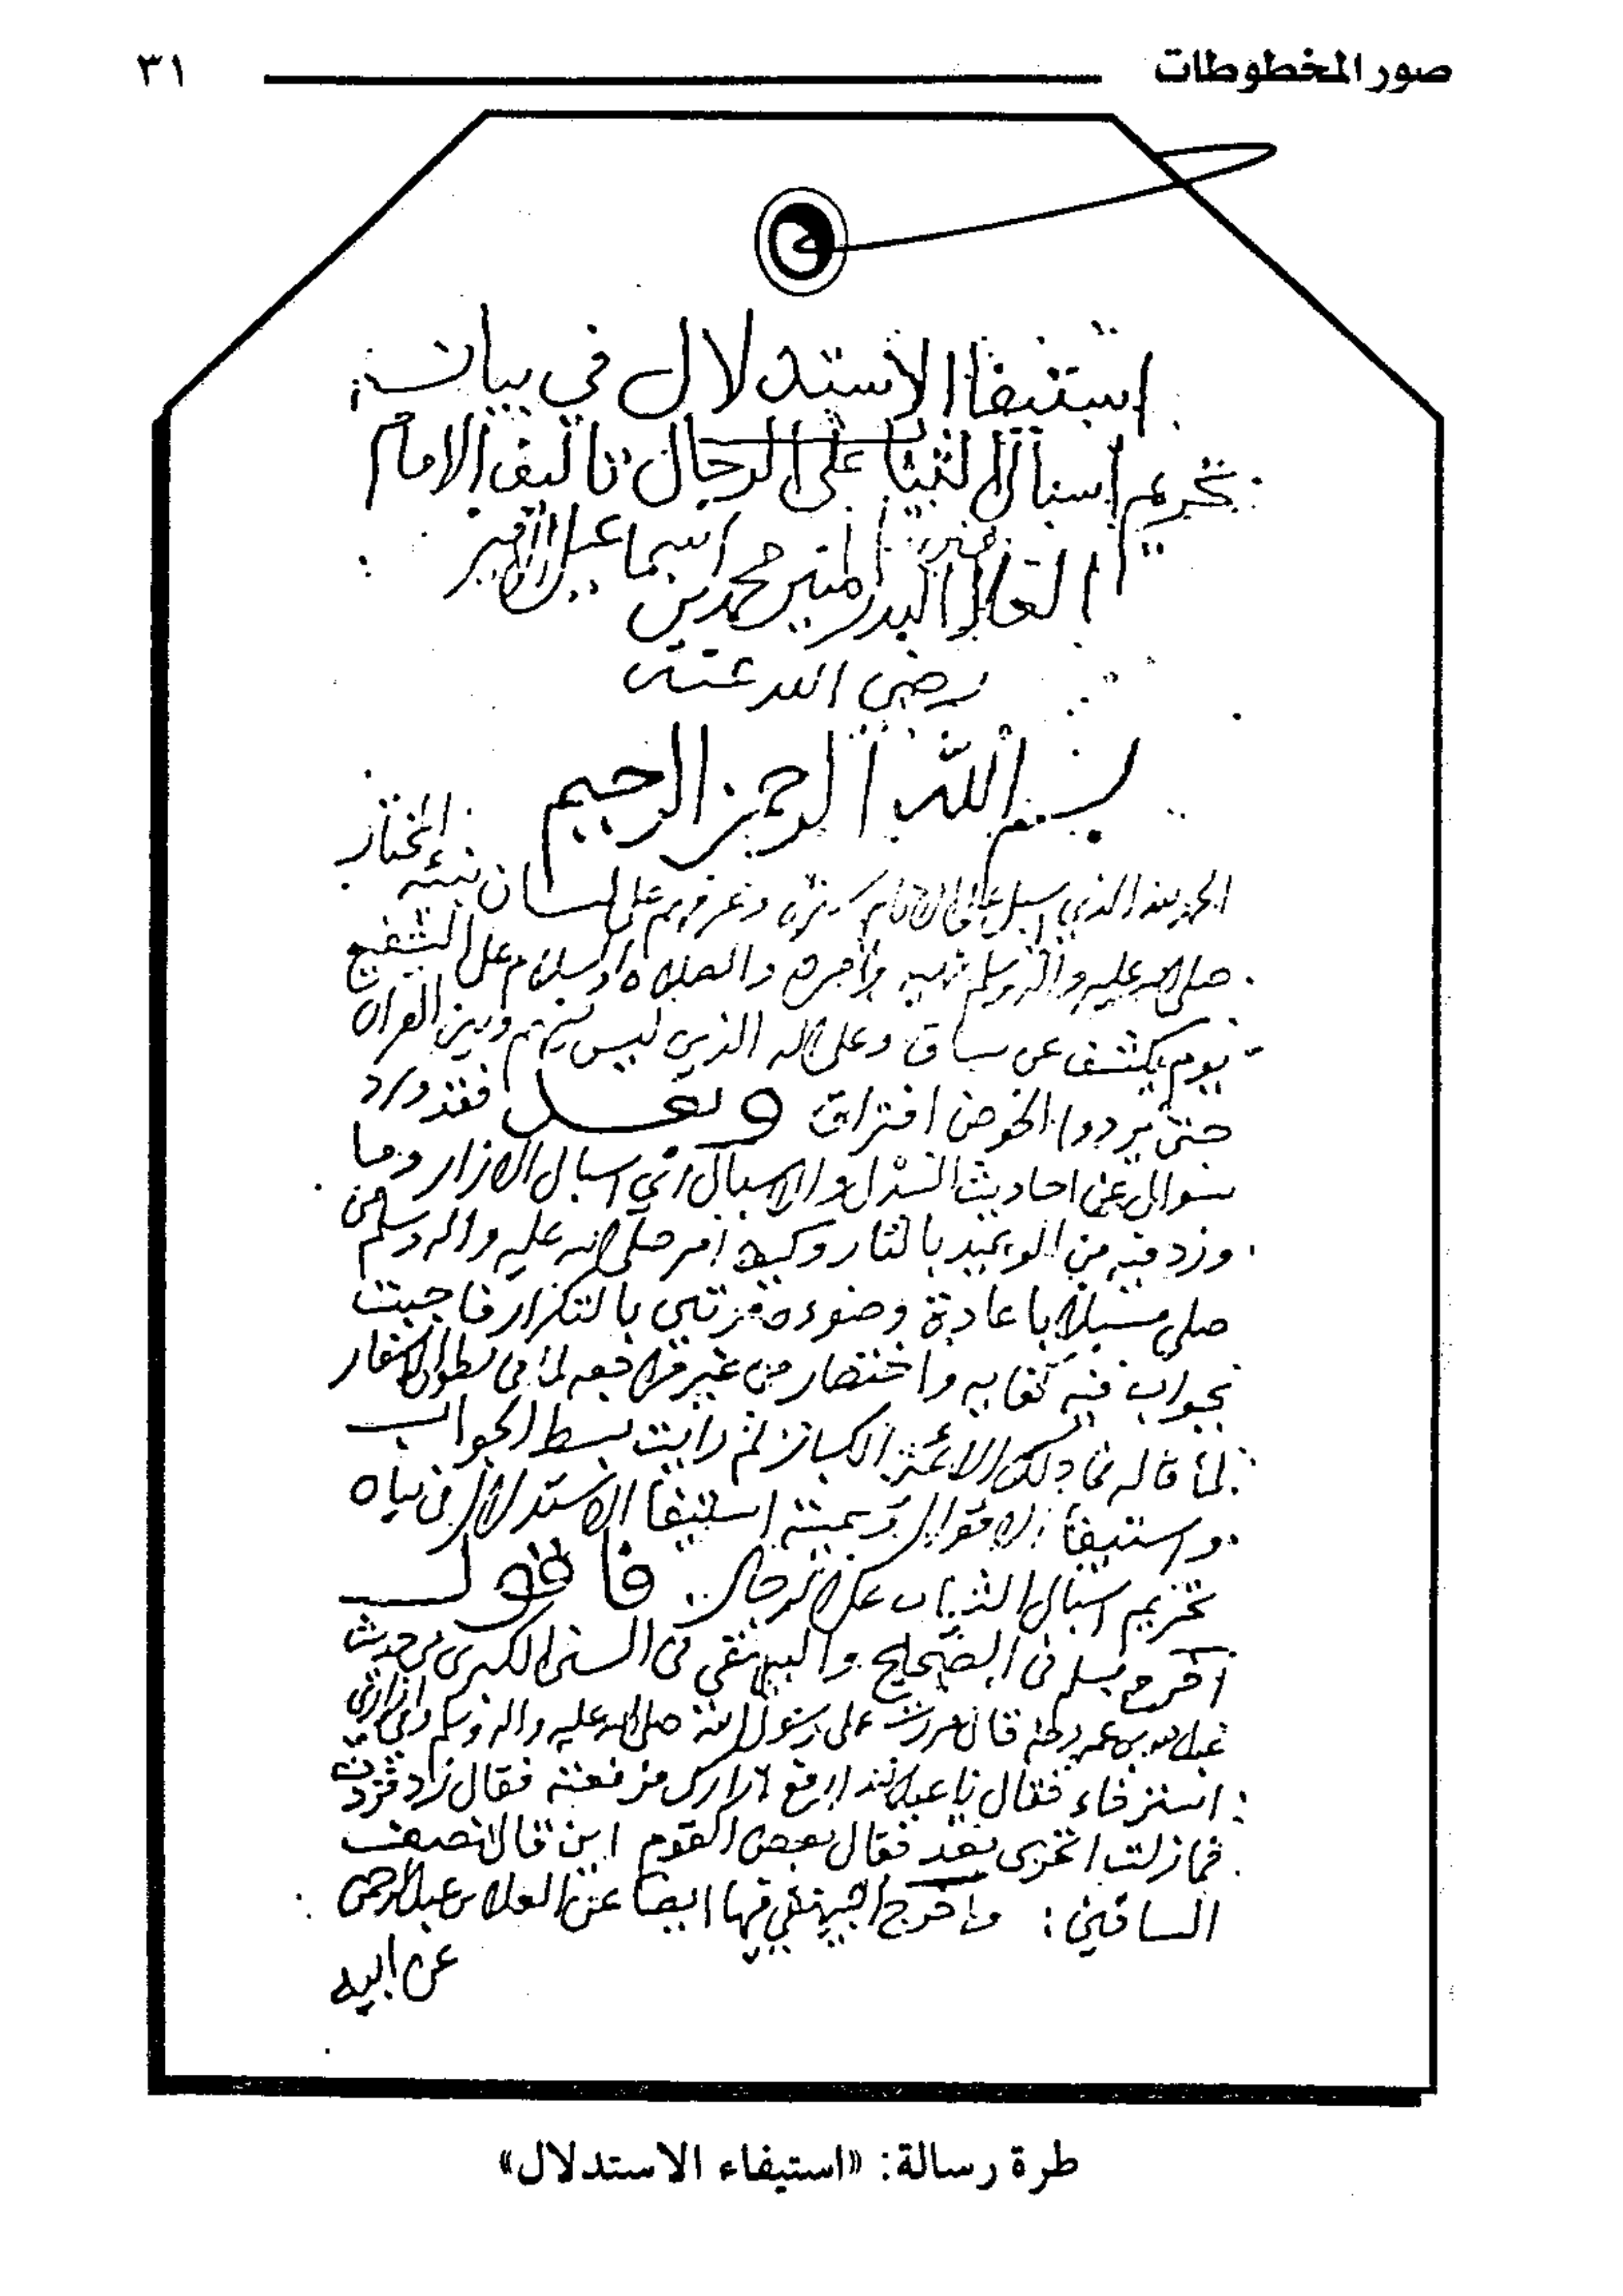 صور المخطوطات
٣١
استيفا الاستدلال في بيان
تحريم اسبال الثياب على الرجال تاليف الامام
العلامة البدر المنير محمد بن اسماعيل الامير
رضي الله عنه
بسم الله الرحمن الرحيم
الحمد لله الذي اسبل على الانام ستره وعرفهم على لسان نبيه المختار
صلى الله عليه واله وسلم نهيه وامره والصلاة والسلام على الشفيع
يوم يكشف عن ساق وعلى اله الذين ليس بينهم وبين القران
حتى يردوا الحوض افتراق وبعد فقد ورد
سوال عن احاديث السدل والاسبال اي اسبال الازار وما
ورد فيه من الوعيد بالنار وكيف امر صلى الله عليه واله وسلم من
صلى مسبلا باعادة وضوءه مرتين بالتكرار فاجبت
بجواب فيه كفايه واختصار من غير لما في بطون الاسفار
لما قاله في ذلك الائمة الكبار ثم رايت بسط الجواب
واستيفا الاقوال وسميته استيفا الاستدلال في بيان
تحريم اسبال الثياب على الرجال فاقول
اخرج مسلم في الصحيح والبيهقي في السنن الكبرى من حديث
عبد الله بن عمر قال مررت على رسول الله صلى الله عليه واله وسلم وفي ازاري
استرخاء فقال يا عبد الله ارفع ازارك فرفعته فقال زد فزدت
فما زلت اتحرى بعد فقال بعض القوم اين قال انصف
الساقين: واخرج البيهقي فيها ايضا عن العلا بن عبد الرحمن
عن ابيه
طرة رسالة: «استيفاء الاستدلال»